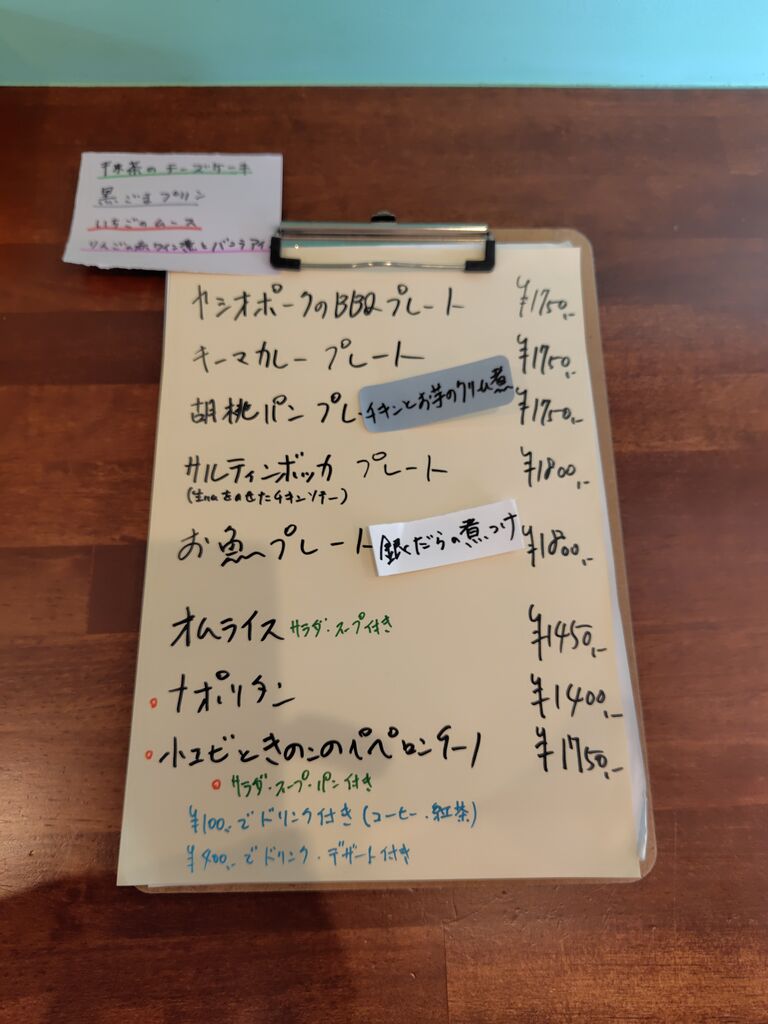 抹茶のチーズケーキ
黒ごまプリン
いちごのムース
りんごの赤ワイン煮とバニラアイ
ヤシオポークのBBQプレート ¥1750.-
キーマカレー プレート ¥1750.-
胡桃パン プレ チキンとお芋のクリーム煮 ¥1750.-
サルティンボッカ プレート ¥1800.-
(生ハムをのせたチキンソテー)
お魚プレート 銀だらの煮つけ ¥1800.-
オムライス サラダ・スープ付き ¥1450.-
ナポリタン ¥1400.-
小エビときのこのペペロンチーノ ¥1750.-
サラダ・スープ・パン付き
¥100.-でドリンク付き(コーヒー・紅茶)
¥400.-でドリンク・デザート付き